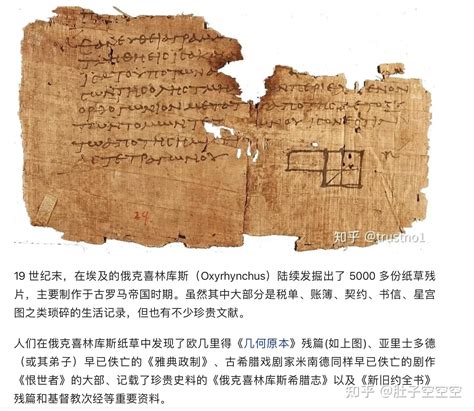 知乎 @trustno1
19 世纪末，在埃及的俄克喜林库斯（Oxyrhynchus）陆续发掘出了 5000 多份纸草残
片，主要制作于古罗马帝国时期。虽然其中大部分是税单、账簿、契约、书信、星宫
图之类琐碎的生活记录，但也有不少珍贵文献。
人们在俄克喜林库斯纸草中发现了欧几里得《几何原本》残篇(如上图)、亚里士多德
（或其弟子）早已佚亡的《雅典政制》、古希腊戏剧家米南德同样早已佚亡的剧作
《恨世者》的大部、记载了珍贵史料的《俄克喜林库斯希腊志》以及《新旧约全书》
残篇和基督教次经等重要资料。
知乎 @肚子空空空